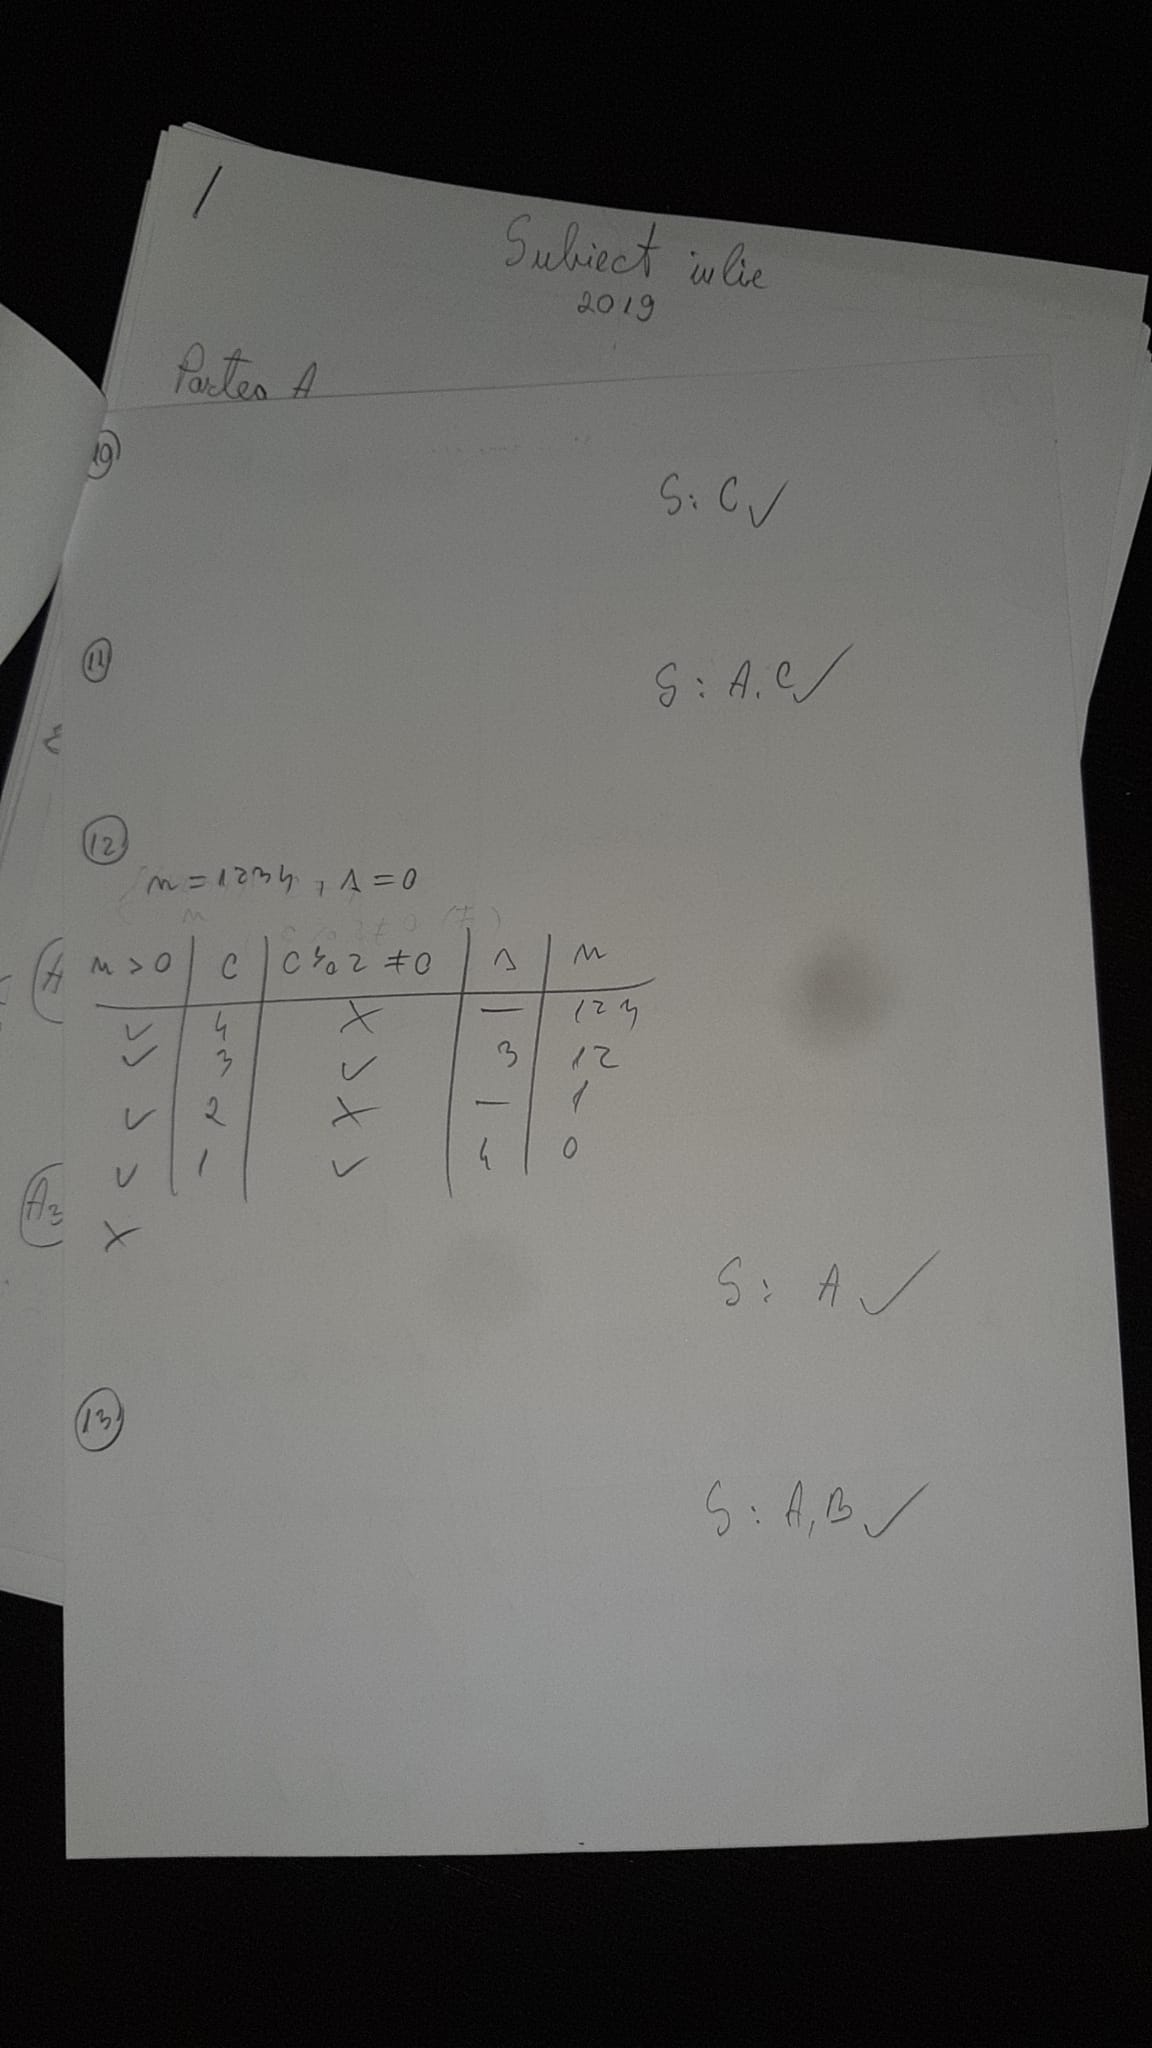 Subiect iulie
2019
Partea A
10
S: C ✓
11
S: A, C ✓
12
n = 1234, s = 0
n > 0 | c | c % 2 ≠ 0 | s | n
✓ | 4 | X | — | 123
✓ | 3 | ✓ | 3 | 12
✓ | 2 | X | — | 1
✓ | 1 | ✓ | 4 | 0
X
S: A ✓
13
S: A, B ✓